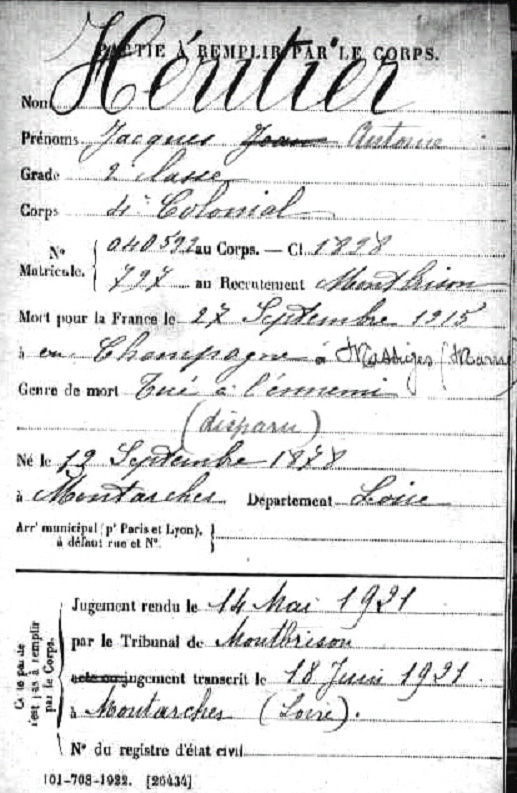 PARTIE À REMPLIR PAR LE CORPS.
Nom Héritier
Prénoms Jacques Jean Antoine
Grade 2 classe
Corps 4e Colonial
N° Matricule. { 040592 au Corps. — Cl. 1898
797 au Recrutement Montbrison
Mort pour la France le 27 Septembre 1915
à en Champagne à Massiges (Marne)
Genre de mort Tué à l'ennemi
(disparu)
Né le 12 Septembre 1878
à Montarcher Département Loire
Arrt municipal (pr Paris et Lyon),
à défaut rue et N°. }
Jugement rendu le 14 Mai 1921
par le Tribunal de Montbrison
acte ou jugement transcrit le 18 Juin 1921.
à Montarcher (Loire).
N° du registre d'état civil
Cette partie
n'est pas à remplir
par le Corps.
101-708-1922. [26434]